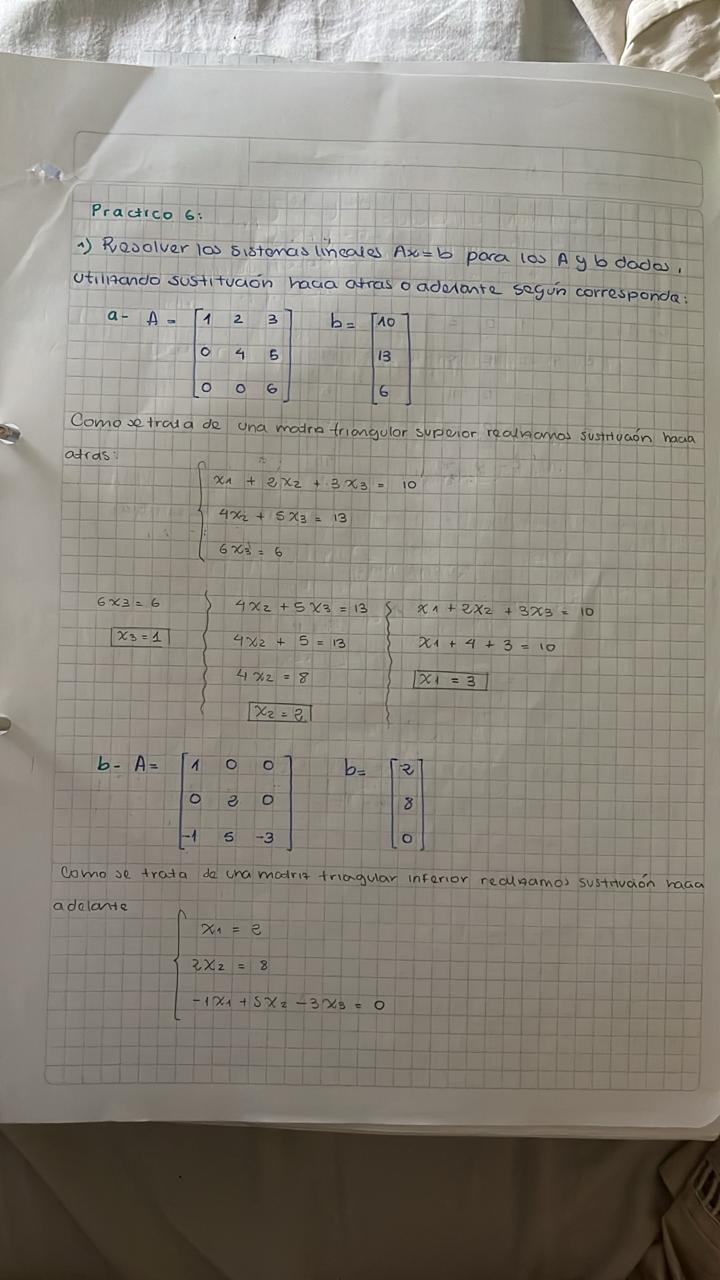 Practico 6:
1) Resolver los sistemas lineales Ax = b para los A y b dados,
utilizando sustitución hacia atras o adelante según corresponda:
a- A = [1 2 3] b = [10]
[0 4 5] [13]
[0 0 6] [6]
Como se trata de una matriz triangular superior realizamos sustitución hacia
atras:
x1 + 2x2 + 3x3 = 10
4x2 + 5x3 = 13
6x3 = 6
6x3 = 6 4x2 + 5x3 = 13 x1 + 2x2 + 3x3 = 10
x3 = 1 4x2 + 5 = 13 x1 + 4 + 3 = 10
4x2 = 8 x1 = 3
x2 = 2
b- A = [1 0 0] b = [2]
[0 2 0] [8]
[-1 5 -3] [0]
Como se trata de una matriz triangular inferior realizamos sustitución hacia
adelante
x1 = 2
2x2 = 8
-1x1 + 5x2 - 3x3 = 0